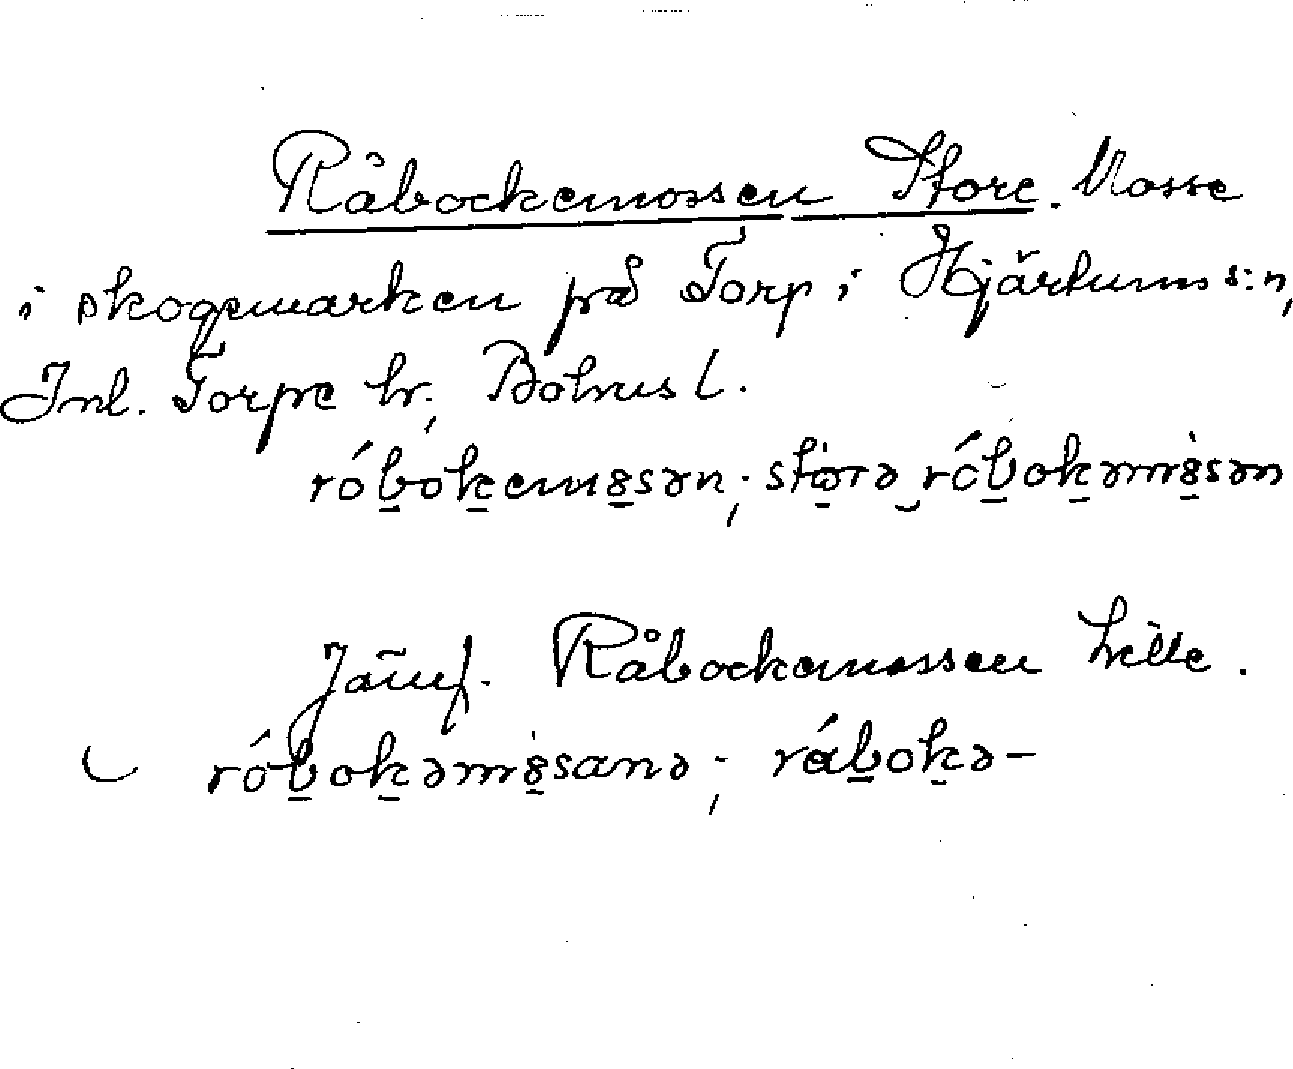 Råbockemossen Store. Mosse
i skogsmarken på Torp i Hjärtums s:n,
Inl. Torpe hr, Bohusl.
róbokemȣsən; stora róbokəmȣsən
Jämf. Råbockemossen Lille.
róbokəmȣsanə; rábokə–